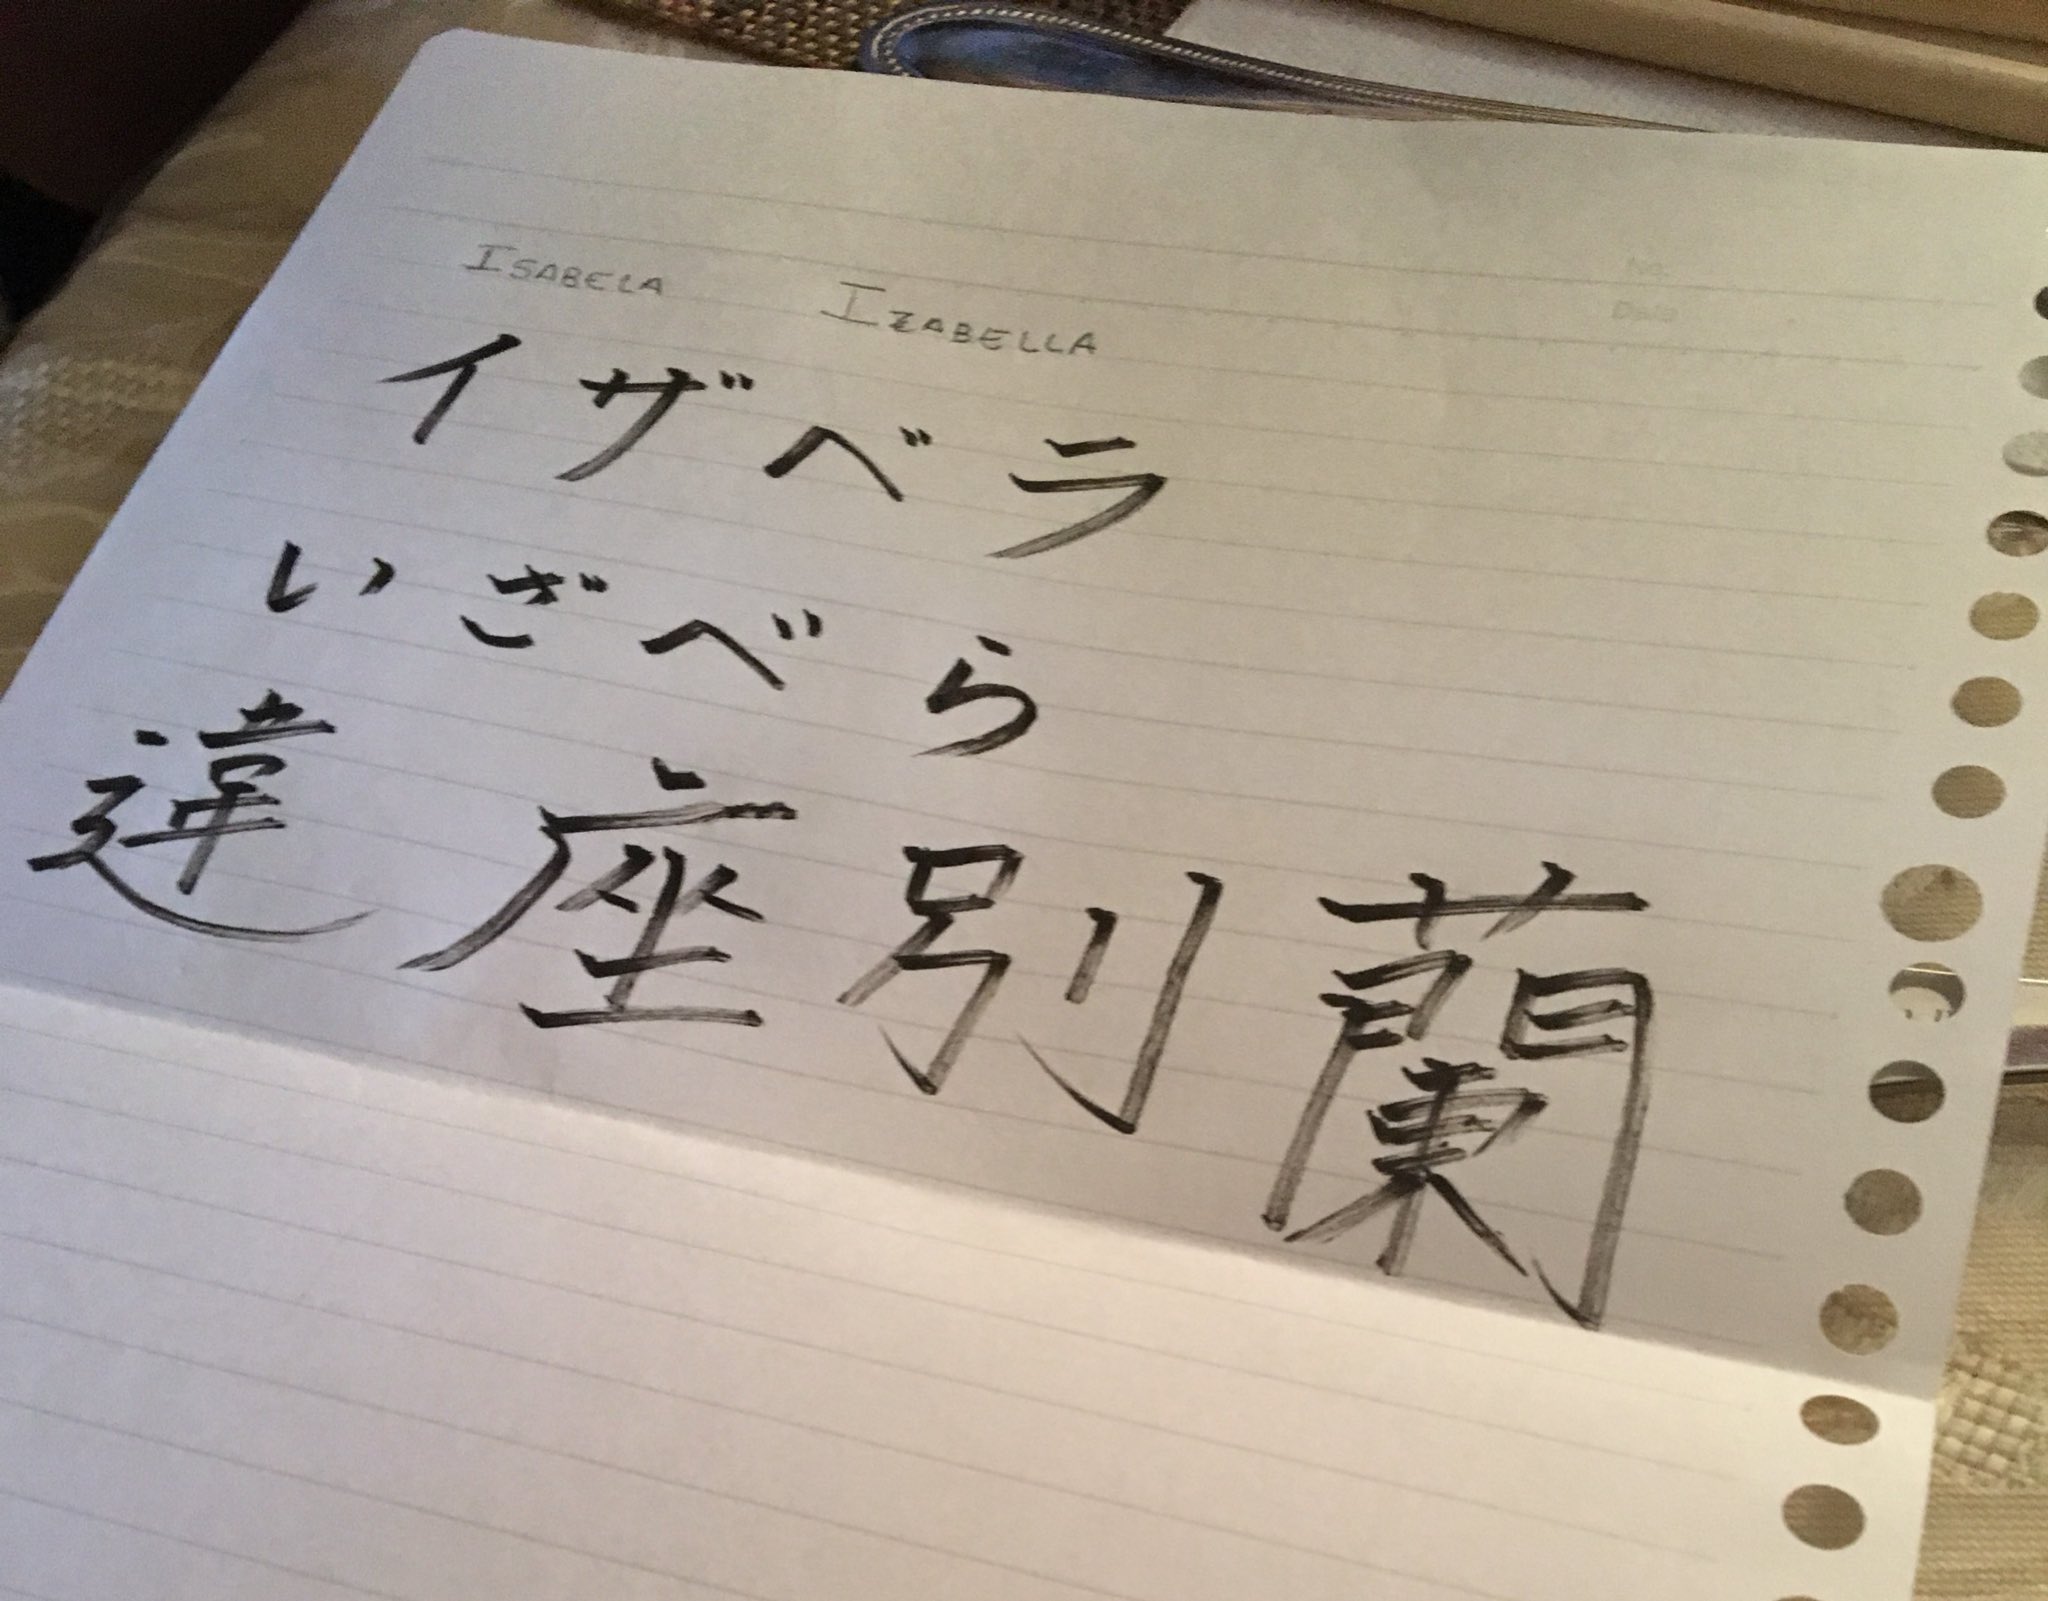 No.
Date
ISABELA IZABELLA
イザベラ
いざべら
違座別蘭